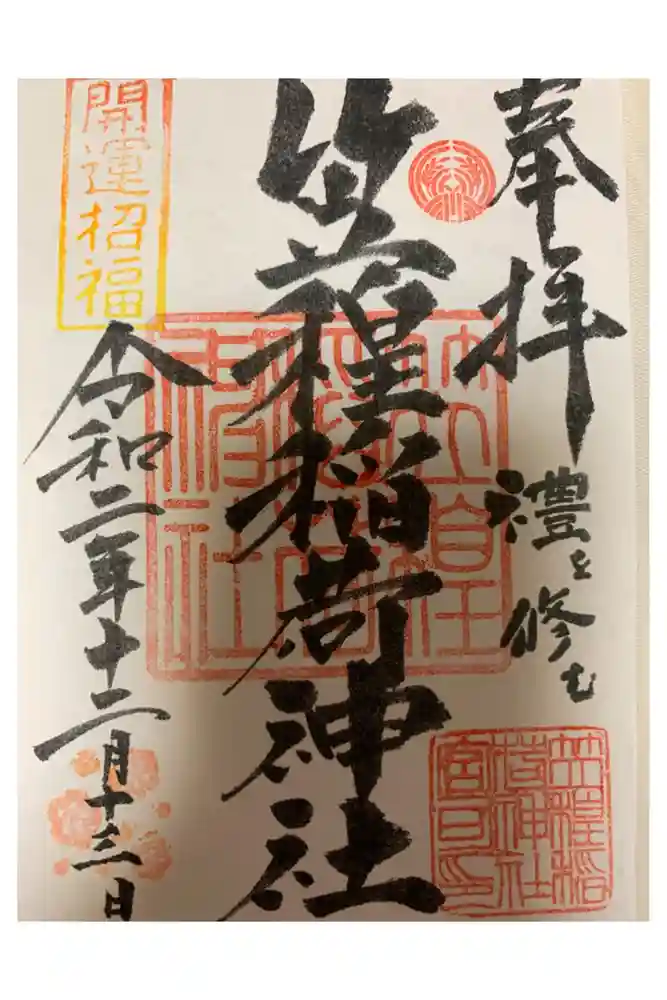 奉拝
禮を修む
笠䅣稲
荷神社
宮司印
笠䅣稲荷神社
笠䅣
稲荷
神社
開運招福
令和二年十二月十三日